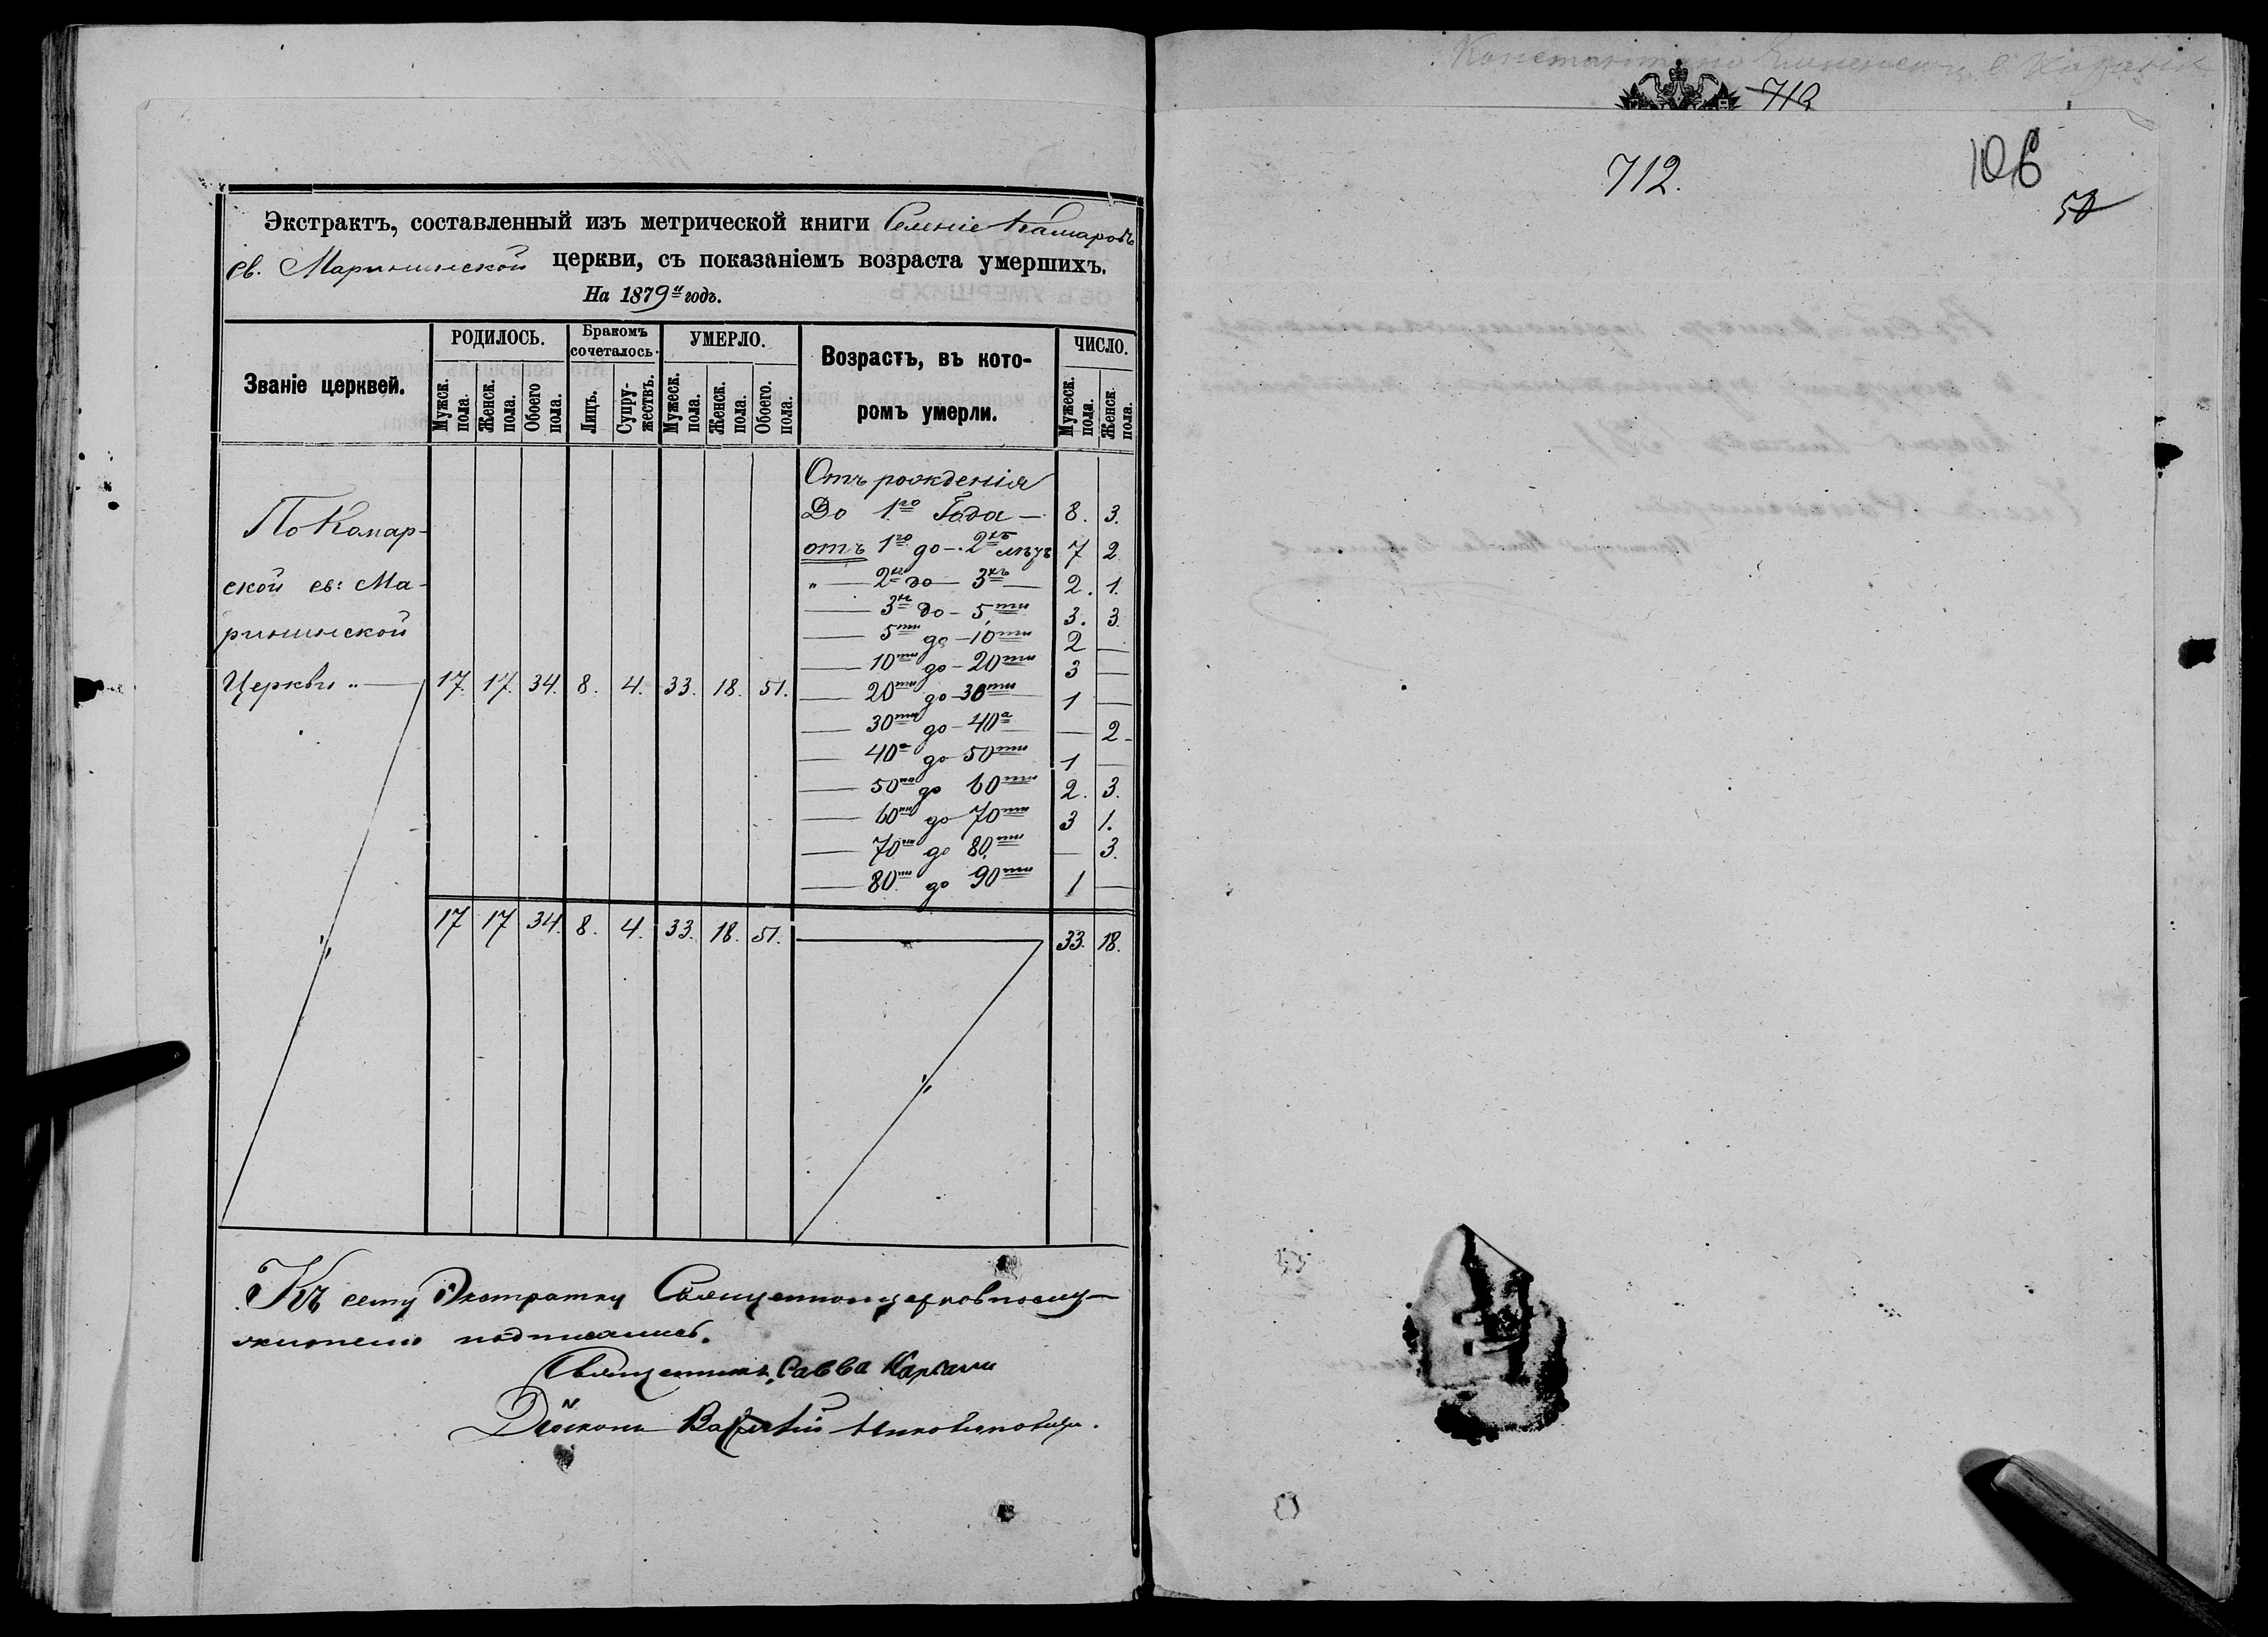 Экстрактъ, составленный изъ метрической книги Селеніе Камаровъ
св. Марининской церкви, съ показаніемъ возраста умершихъ.
На 1879й годъ.
Званіе церквей.
РОДИЛОСЬ.
Бракомъ сочеталось.
УМЕРЛО.
Возрастъ, въ кото-
ромъ умерли.
ЧИСЛО.
Мужск. пола.
Женск. пола.
Обоего пола.
Лицъ.
Супру-жествъ.
Мужеск. пола.
Женск. пола.
Обоего. пола.
Мужеск. пола.
Женск. пола.
Отъ рожденія
До 1го Года — 8. 3.
отъ 1го до — 2хъ лѣтъ 7 2
" — 2хъ до — 3хъ — 2. 1.
— 3хъ до — 5ти 3. 3.
— 5ти до — 10ти 2 —
— 10ти до — 20ти 3 —
— 20ти до — 30ти 1 —
— 30ти до — 40а — 2 -
— 40а до 50ти 1 —
— 50ти до 60ти 2. 3.
— 60ти до 70ти 3 1.
— 70ти до 80ти — 3.
— 80ти до 90ти 1 —
По Комар-
ской св: Ма-
рининской
Церкви " — 17. 17. 34. 8. 4. 33. 18. 51.
17 17 34. 8. 4. 33. 18. 51. 33. 18.
Къ сему Экстракту Священноцерковнослу-
жители подписались.
Священникъ Савва
Діаконъ
712
712.
106
50